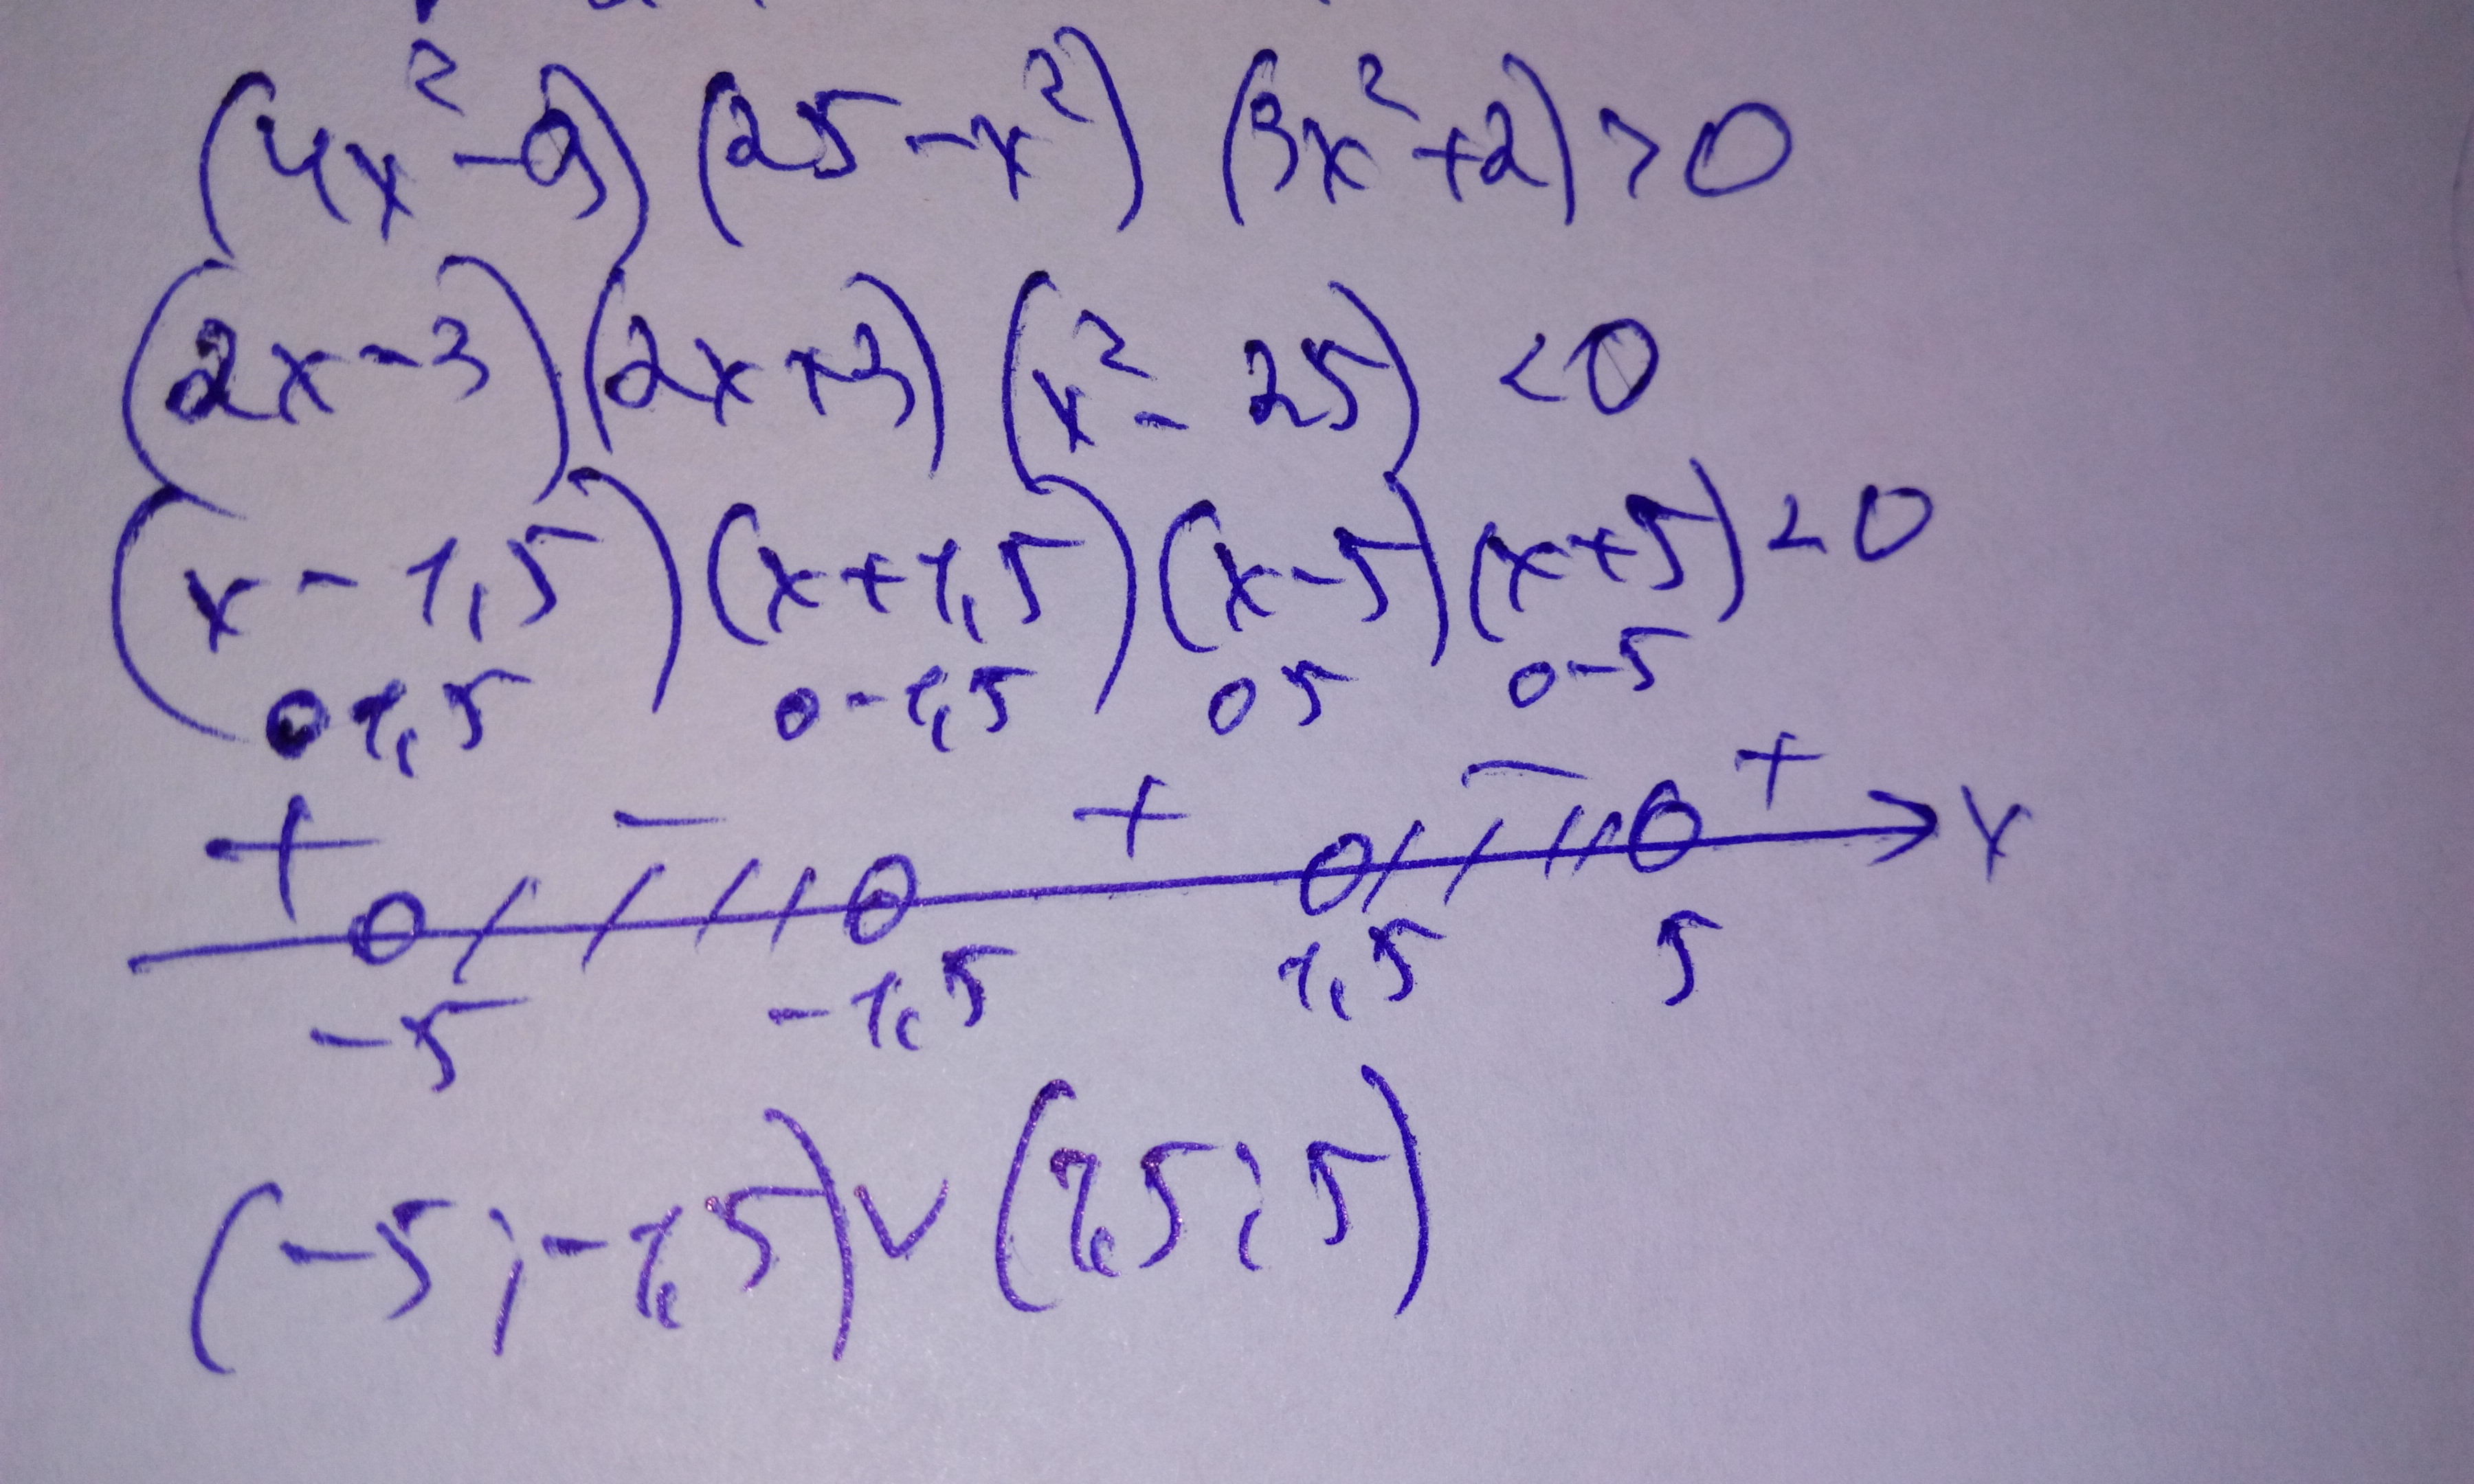 (4x²-9)(25-x²)(3x²+2)>0
(2x-3)(2x+3)(x²-25)<0
(x-1,5)(x+1,5)(x-5)(x+5)<0
0 1,5 0 -1,5 0 5 0 -5
+ - + - +
x
-5 -1,5 1,5 5
(-5;-1,5)∪(1,5;5)